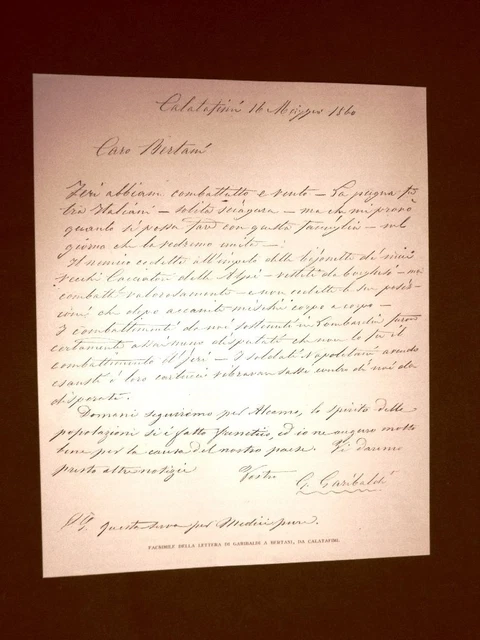 Calatafimi 16 Maggio 1860
Caro Bertani
Ieri abbiam combattutto e vinto — La pugna fu
tra Italiani — solita sciagura — ma che mi provò
quanto si possa fare con questa famiglia — nel
giorno che la vedremo unita —
Il nemico cedette all'impeto delle bajonette de' miei
vecchi Cacciatori delle Alpi — vestiti da borghesi — ma
combattè valorosamente — e non cedette le sue posi-
zioni che dopo accanite mischie corpo a corpo —
I combattimenti da noi sostenuti in Lombardia furon
certamente assai meno disputati che non lo fu il
combattimento d'jeri — I soldati napoletani avendo
esausti i loro cartucci vibravan sassi contro di noi da
disperati.
Domani seguiremo per Alcamo, lo spirito delle
popolazioni si è fatto frenetico, ed io ne auguro molto
bene per la causa del nostro paese. Vi daremo
presto altre notizie
Vostro
G. Garibaldi
PS. Questa serva per Medici pure.
FACSIMILE DELLA LETTERA DI GARIBALDI A BERTANI, DA CALATAFIMI.